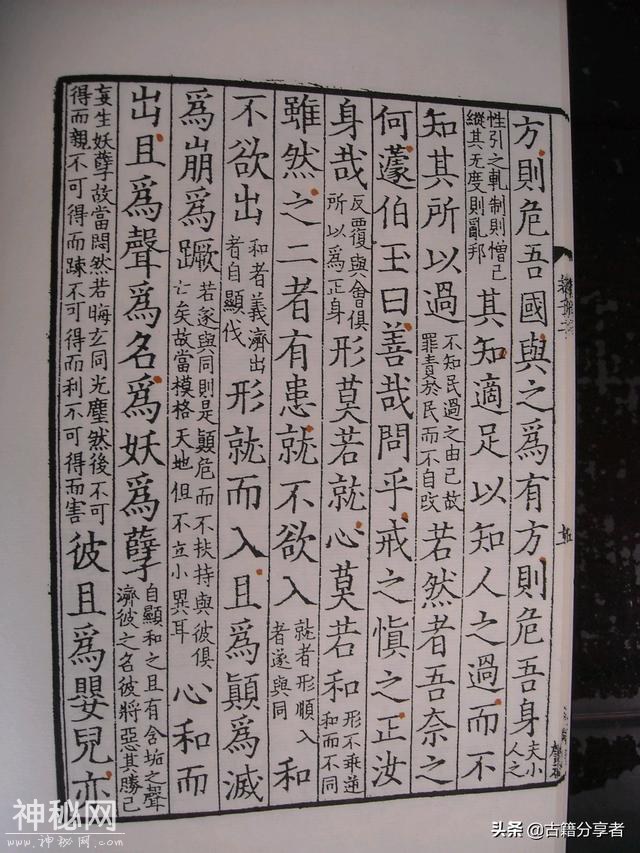 方則危吾國與之爲有方則危吾身夫小人之
性引之軌制則憎己縱其无度則亂邦其知適足以知人之過而不
知其所以過不知民過之由己故罪責於民而不自攺若然者吾奈之
何蘧伯玉曰善哉問乎戒之慎之正汝
身哉反覆與會俱所以爲正身形莫若就心莫若和形不乖迕和而不同
雖然之二者有患就不欲入就者形順入者遂與同和
不欲出和者義濟出者自顯伐形就而入且爲顛爲滅
爲崩爲蹶若遂與同則是顛危而不扶持與彼俱亡矣故當模格天地但不立小異耳心和而
出且爲聲爲名爲妖爲孽自顯和之且有含垢之聲濟彼之名彼將惡其勝己
妄生妖孽故當悶然若晦玄同光塵然後不可得而親不可得而踈不可得而利不可得而害彼且爲嬰兒亦
神秘网
www.神秘网.com
头条 @古籍分享者